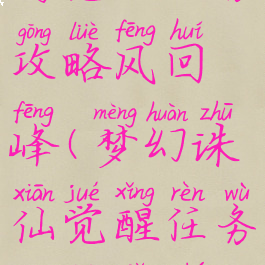 gōng lüè fēng huí
攻略风回
fēng mèng huàn zhū
峰(梦幻诛
xiān jué xǐng rèn wù
仙觉醒任务